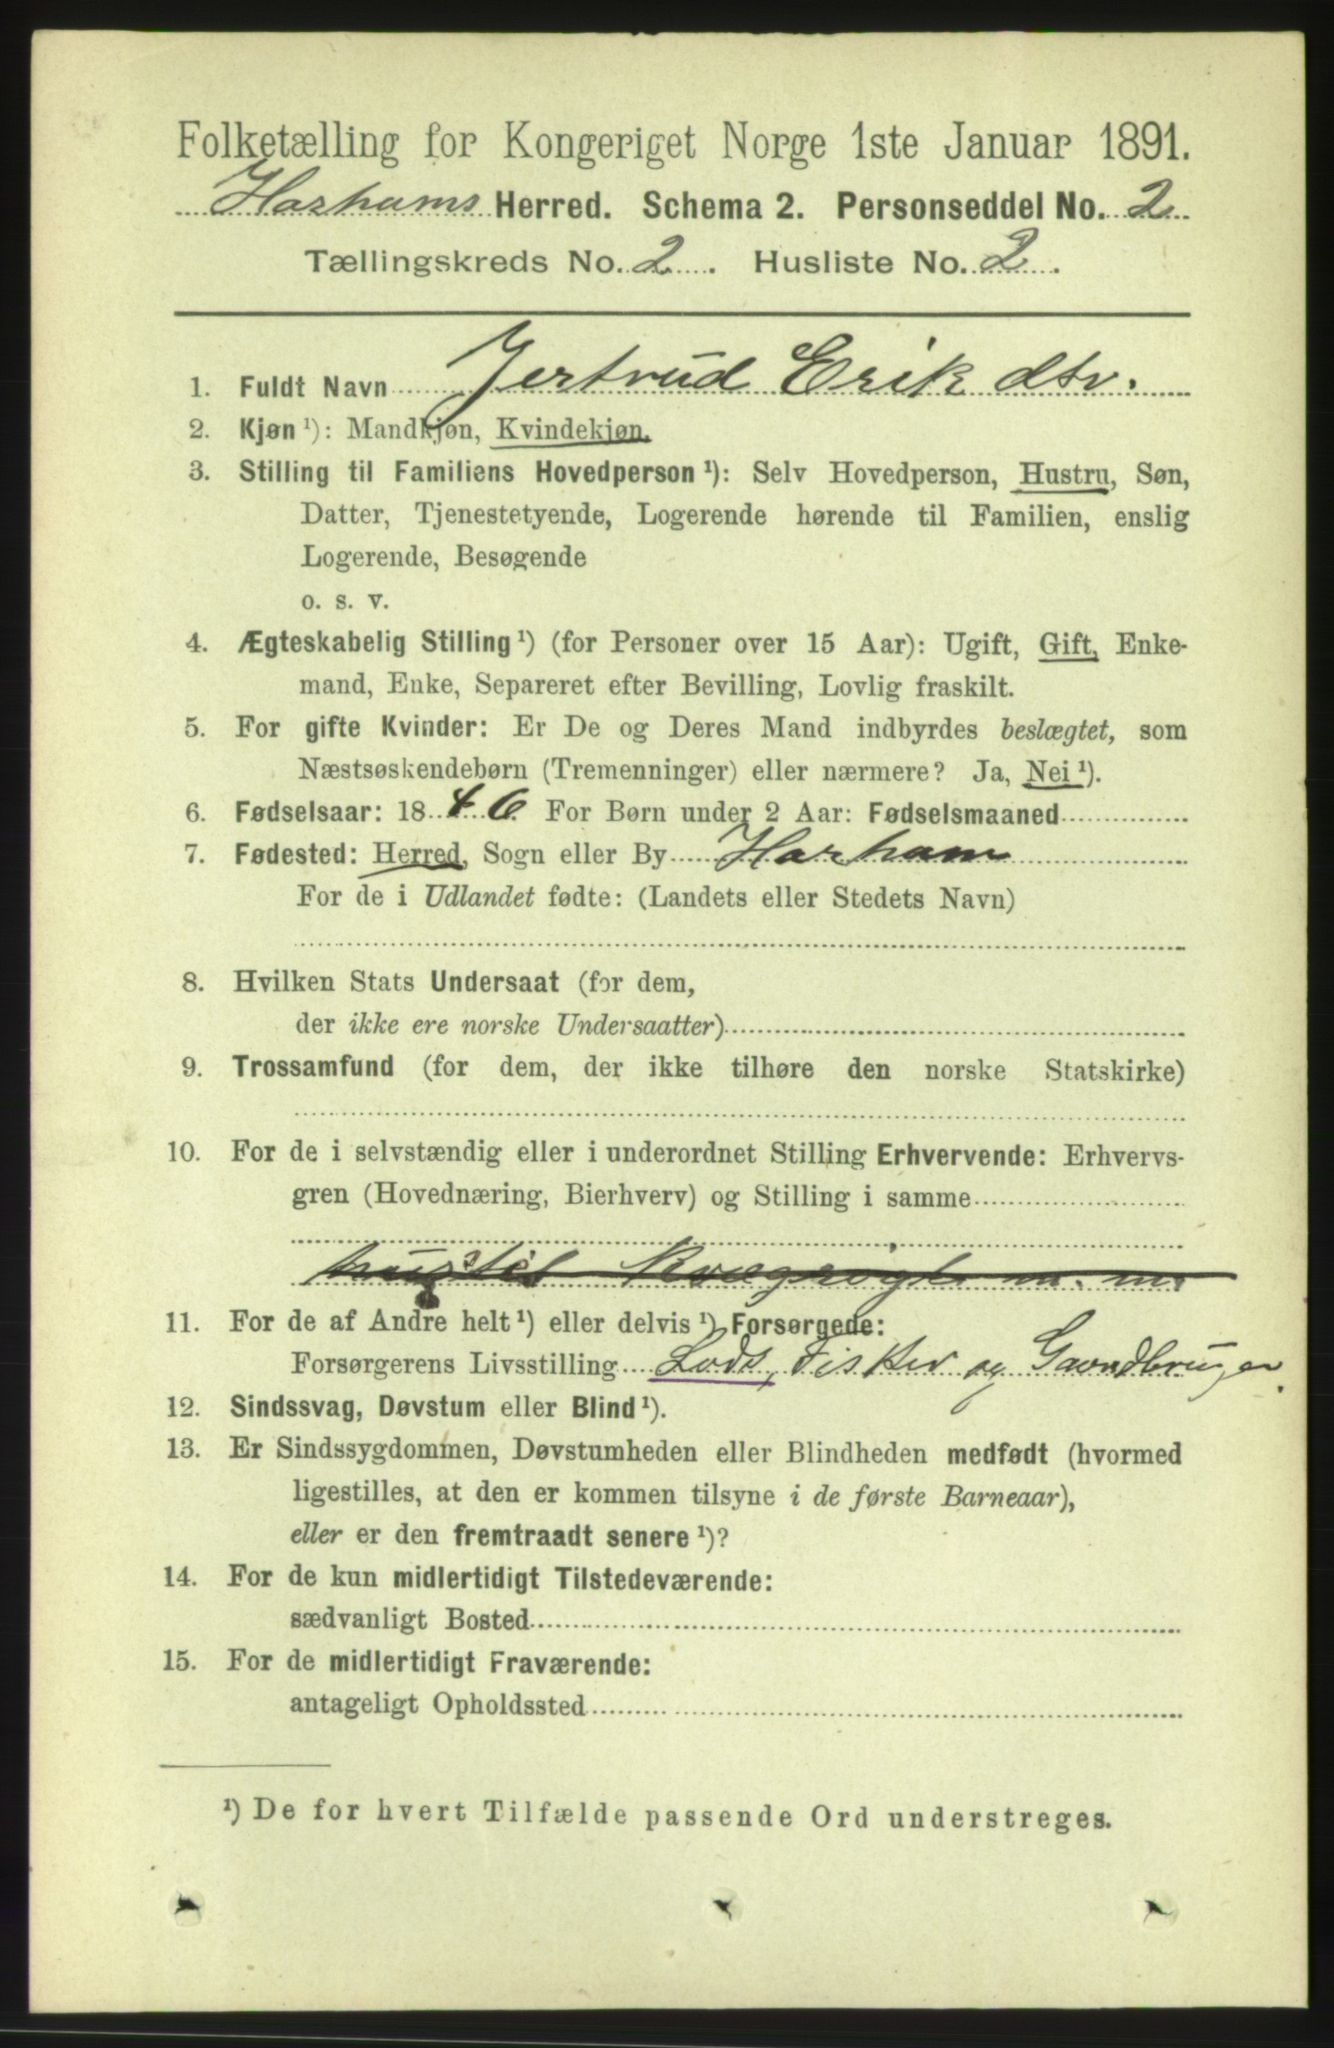 Folketælling for Kongeriget Norge 1ste Januar 1891.
Harhams Herred. Schema 2. Personseddel No. 2
Tællingskreds No. 2. Husliste No. 2.
1. Fuldt Navn Jertrud Erik dtr.
2. Kjøn¹): Mandkjøn, Kvindekjøn.
3. Stilling til Familiens Hovedperson¹): Selv Hovedperson, Hustru, Søn,
Datter, Tjenestetyende, Logerende hørende til Familien, enslig
Logerende, Besøgende
o. s. v.
4. Ægteskabelig Stilling¹) (for Personer over 15 Aar): Ugift, Gift, Enke-
mand, Enke, Separeret efter Bevilling, Lovlig fraskilt.
5. For gifte Kvinder: Er De og Deres Mand indbyrdes beslægtet, som
Næstsøskendebørn (Tremenninger) eller nærmere? Ja, Nei¹).
6. Fødselsaar: 1846 For Børn under 2 Aar: Fødselsmaaned
7. Fødested: Herred, Sogn eller By Harham
For de i Udlandet fødte: (Landets eller Stedets Navn)
8. Hvilken Stats Undersaat (for dem,
der ikke ere norske Undersaatter)
9. Trossamfund (for dem, der ikke tilhøre den norske Statskirke)
10. For de i selvstændig eller i underordnet Stilling Erhvervende: Erhvervs-
gren (Hovednæring, Bierhverv) og Stilling i samme
huustel Kvægrøgt m. m.
11. For de af Andre helt¹) eller delvis¹) Forsørgede:
Forsørgerens Livsstilling Lods, Fisker og Gaardbruger.
12. Sindssvag, Døvstum eller Blind¹).
13. Er Sindssygdommen, Døvstumheden eller Blindheden medfødt (hvormed
ligestilles, at den er kommen tilsyne i de første Barneaar),
eller er den fremtraadt senere¹)?
14. For de kun midlertidigt Tilstedeværende:
sædvanligt Bosted
15. For de midlertidigt Fraværende:
antageligt Opholdssted
¹) De for hvert Tilfælde passende Ord understreges.